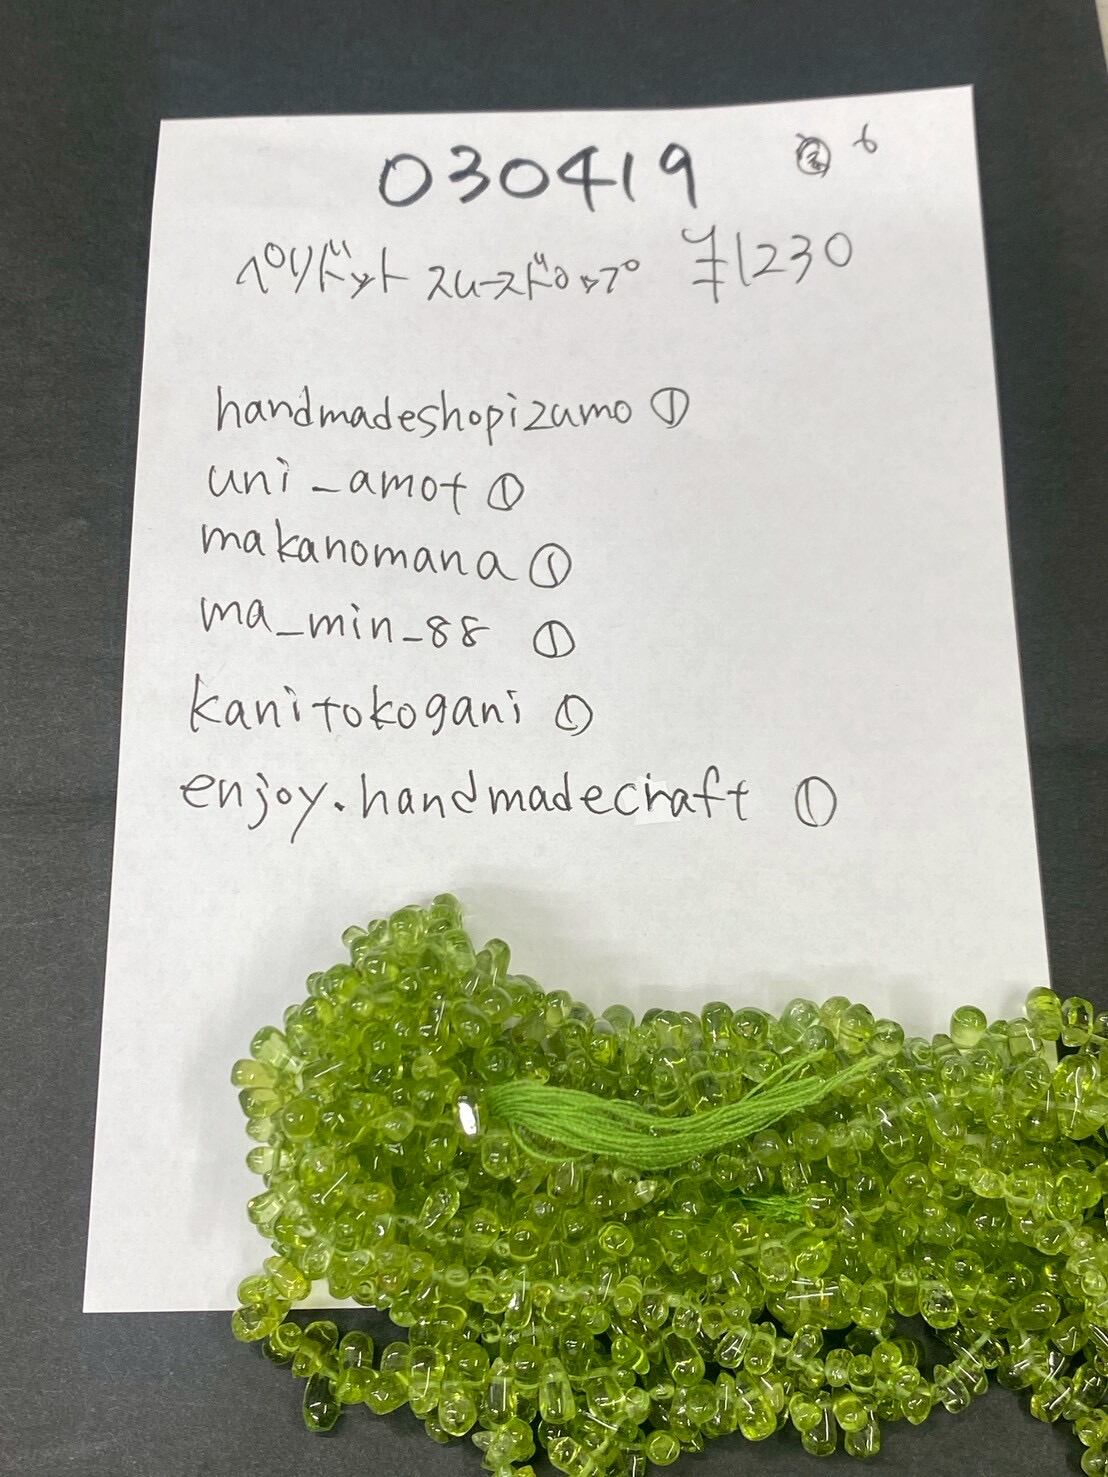 030419 6
ペリドット スムースドロップ ¥1230
handmadeshopizumo ①
uni_amot ①
makanomana ①
ma_min_88 ①
kanitokogani ①
enjoy.handmadecraft ①